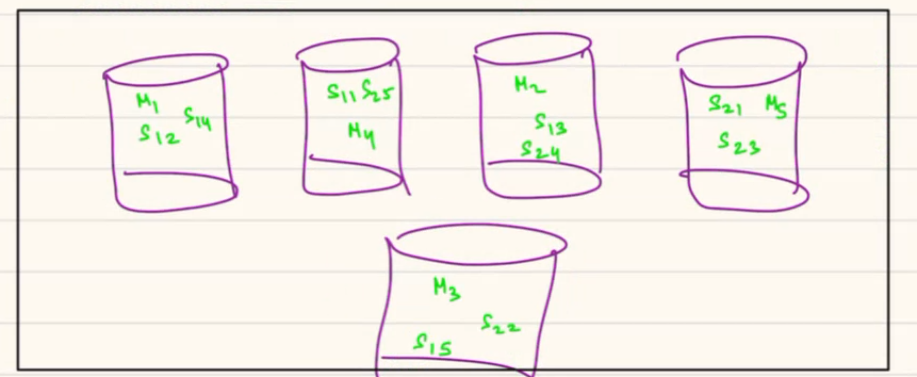 M1
S14
S12
S11 S25
M4
M2
S13
S24
S21 M5
S23
M3
S22
S15